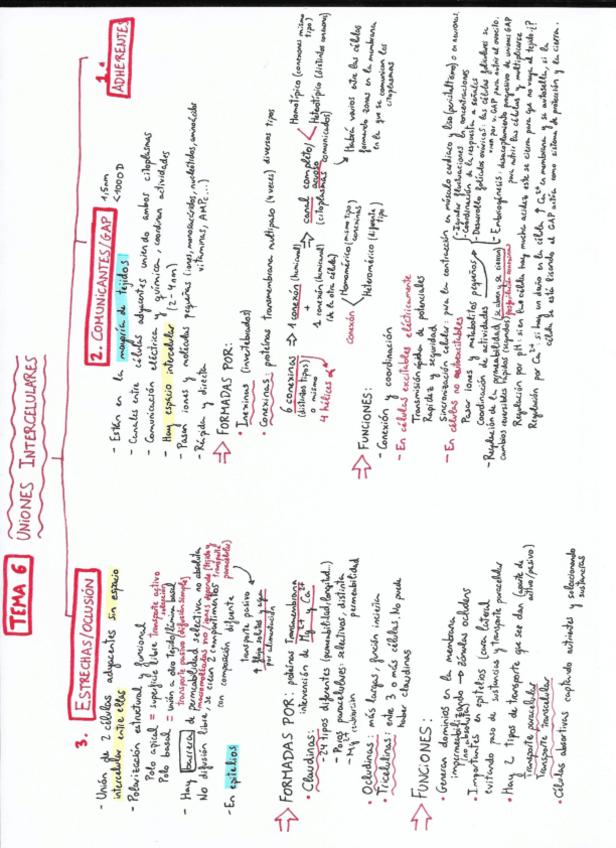 TEMA 6
UNIONES INTERCELULARES
3. ESTRECHAS/OCLUSIÓN
- Unión de 2 células adyacentes sin espacio
intercelular entre ellas
- Polarización estructural y funcional
Polo apical = superficie libre transporte activo
Polo basal = unión a otro tejido/lámina basal
transporte pasivo (difusión simple)
- Hay barrera de permeabilidad selectiva, no absoluta
No difusión libre, se crean 2 compartimentos
con composición diferente
transporte pasivo
- En epitelios
FORMADAS POR: proteínas transmembrana
intervención de Mg2+ y Ca2+
• Claudinas:
- 24 tipos diferentes (permeabilidad, longitud...)
- Poros paracelulares: selectivos, distinta
permeabilidad
- Mg2+ reabsorción
• Ocludinas: más largas, función incierta
• Tricelulinas: entre 3 o más células. No puede
haber claudinas
FUNCIONES:
• Generan dominios en la membrana
impermeabilizando → zónulas ocludens
(no absoluta)
• Importantes en epitelios (cara lateral
Evitando paso de sustancias y transporte paracelular
• Hay 2 tipos de transporte que se dan (aparte de
activo/pasivo)
Transporte paracelular
Transporte transcelular
• Células absortivas captando nutrientes y seleccionando
sustancias
2. COMUNICANTES/GAP
1,5nm
<1000 D
- Están en la mayoría de tejidos
- Canales entre células adyacentes uniendo ambos citoplasmas
- Comunicación eléctrica y química, coordinan actividades
- Hay espacio intercelular (2-4nm)
- Pasan iones y moléculas pequeñas (iones, monosacáridos, nucleótidos, aminoácidos
vitaminas, AMPc...)
- Rápida y directa
FORMADAS POR:
• Inexinas (invertebrados)
• Conexinas: proteínas transmembrana multipaso (4 veces) diversos tipos
6 conexinas → 1 conexón (hemicanal)
(distintos tipos)
o mismo
+
1 conexón (hemicanal)
(de la otra célula)
4 hélices α
canal completo/
acuoso
(citoplasmas comunicados)
Homotípico (conexones mismo
tipo)
Heterotípico (distintos conexones)
conexón
Homomérico (mismo tipo
conexinas)
Heteromérico (diferente
tipo)
Habrá varios entre las células
formando zonas en la membrana
en la que se comunican los
citoplasmas
FUNCIONES:
- Conexión y coordinación
- En células excitables eléctricamente
Transmisión rápida de potenciales
Rapidez y seguridad
Sincronización celular: para la contracción en músculo cardíaco y liso (peristaltismo) o en neuronas.
- En células no excitables
Pasar iones y metabolitos pequeños
Coordinación de actividades
- Igualar fluctuaciones en concentraciones
- Coordinación de la respuesta a señales
- Desarrollo folículos ováricos: las células foliculares se
unen por u. GAP para nutrir al ovocito.
- Embriogénesis: desacoplamiento progresivo de uniones GAP
para nutrir las células y multiplicarse
- Regulación de la permeabilidad (se abren y se cierran)
cambios reversibles rápidos (segundos)
Regulación por pH: si en una célula hay mucha acidez este se cierra para que no vaya al tejido
Regulación por Ca2+: si hay un daño en la célula ↑ Ca2+ en membrana y se autosella, si la
célula lo está ricando el GAP actúa como sistema de protección y la cierra.
1. ADHERENTES